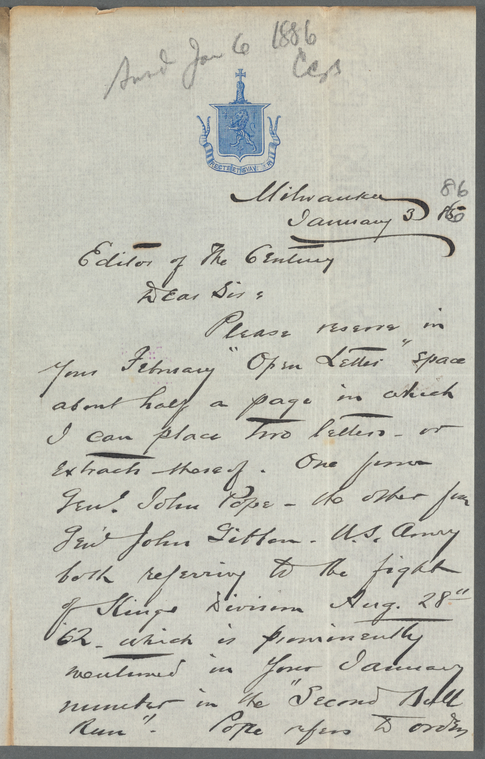 Ansd Jan 6 1886
CCB
86
Milwaukee
January 3 86
Editor of The Century
Dear Sir:
Please reserve in
your February "Open Letter" space
about half a page in which
I can place two letters - or
extracts thereof. One from
Genl. John Pope - the other from
Genl John Gibbon - U.S. Army
both referring to the fight
of Kings Division Aug. 28"
'62 - which is prominently
mentioned in your January
number in the "Second Bull
Run". Pope refers to orders